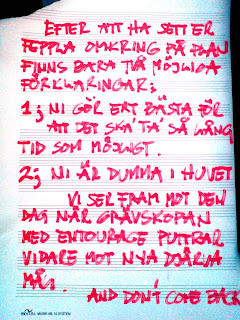 EFTER ATT HA SETT ER
FEPPLA OMKRING PÅ PLAN
FINNS BARA TVÅ MÖJLIGA
FÖRKLARINGAR;
1; NI GÖR ERT BÄSTA FÖR
ATT DET SKA' TA' SÅ LÅNG
TID SOM MÖJLIGT.
2; NI ÄR DUMMA I HUVET
VI SER FRAM MOT DEN
DAG NÄR GRÄVSKOPAN
MED ENTOURAGE PUTTRAR
VIDARE MOT NYA DJÄRVA
MÅL.
AND DON'T COME BACK